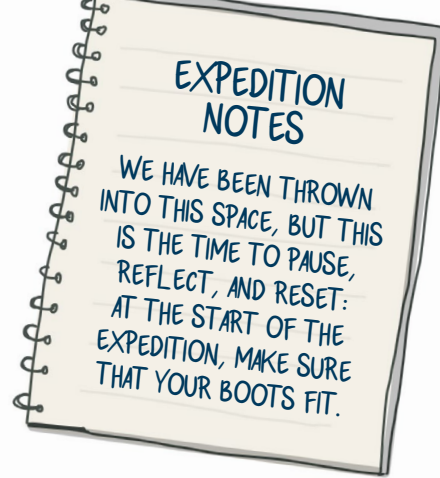 EXPEDITION
NOTES
WE HAVE BEEN THROWN
INTO THIS SPACE, BUT THIS
IS THE TIME TO PAUSE,
REFLECT, AND RESET:
AT THE START OF THE
EXPEDITION, MAKE SURE
THAT YOUR BOOTS FIT.